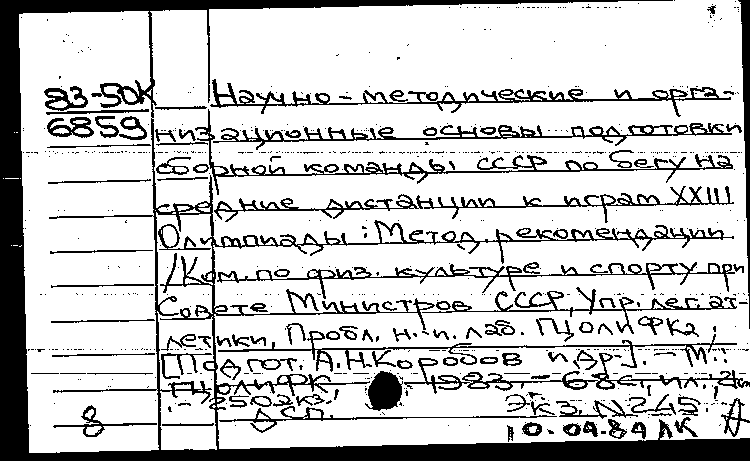 83-50К Научно-методические и орга-
6859 низационные основы подготовки
сборной команды СССР по бегу на
средние дистанции к играм XXIII
Олимпиады: Метод. рекомендации
/Ком. по физ. культуре и спорту при
Совете Министров СССР, Упр. лег. ат-
летики, Пробл. н.-и. лаб. ГЦОЛИФКа;
[Подгот. А.Н.Коробов и др.]. - М.:
ГЦОЛИФК, 1983. - 68 с., ил.; 21 см
. - 250экз.,
8 ДСП. Экз. N 245.
10.04.84 ЛК